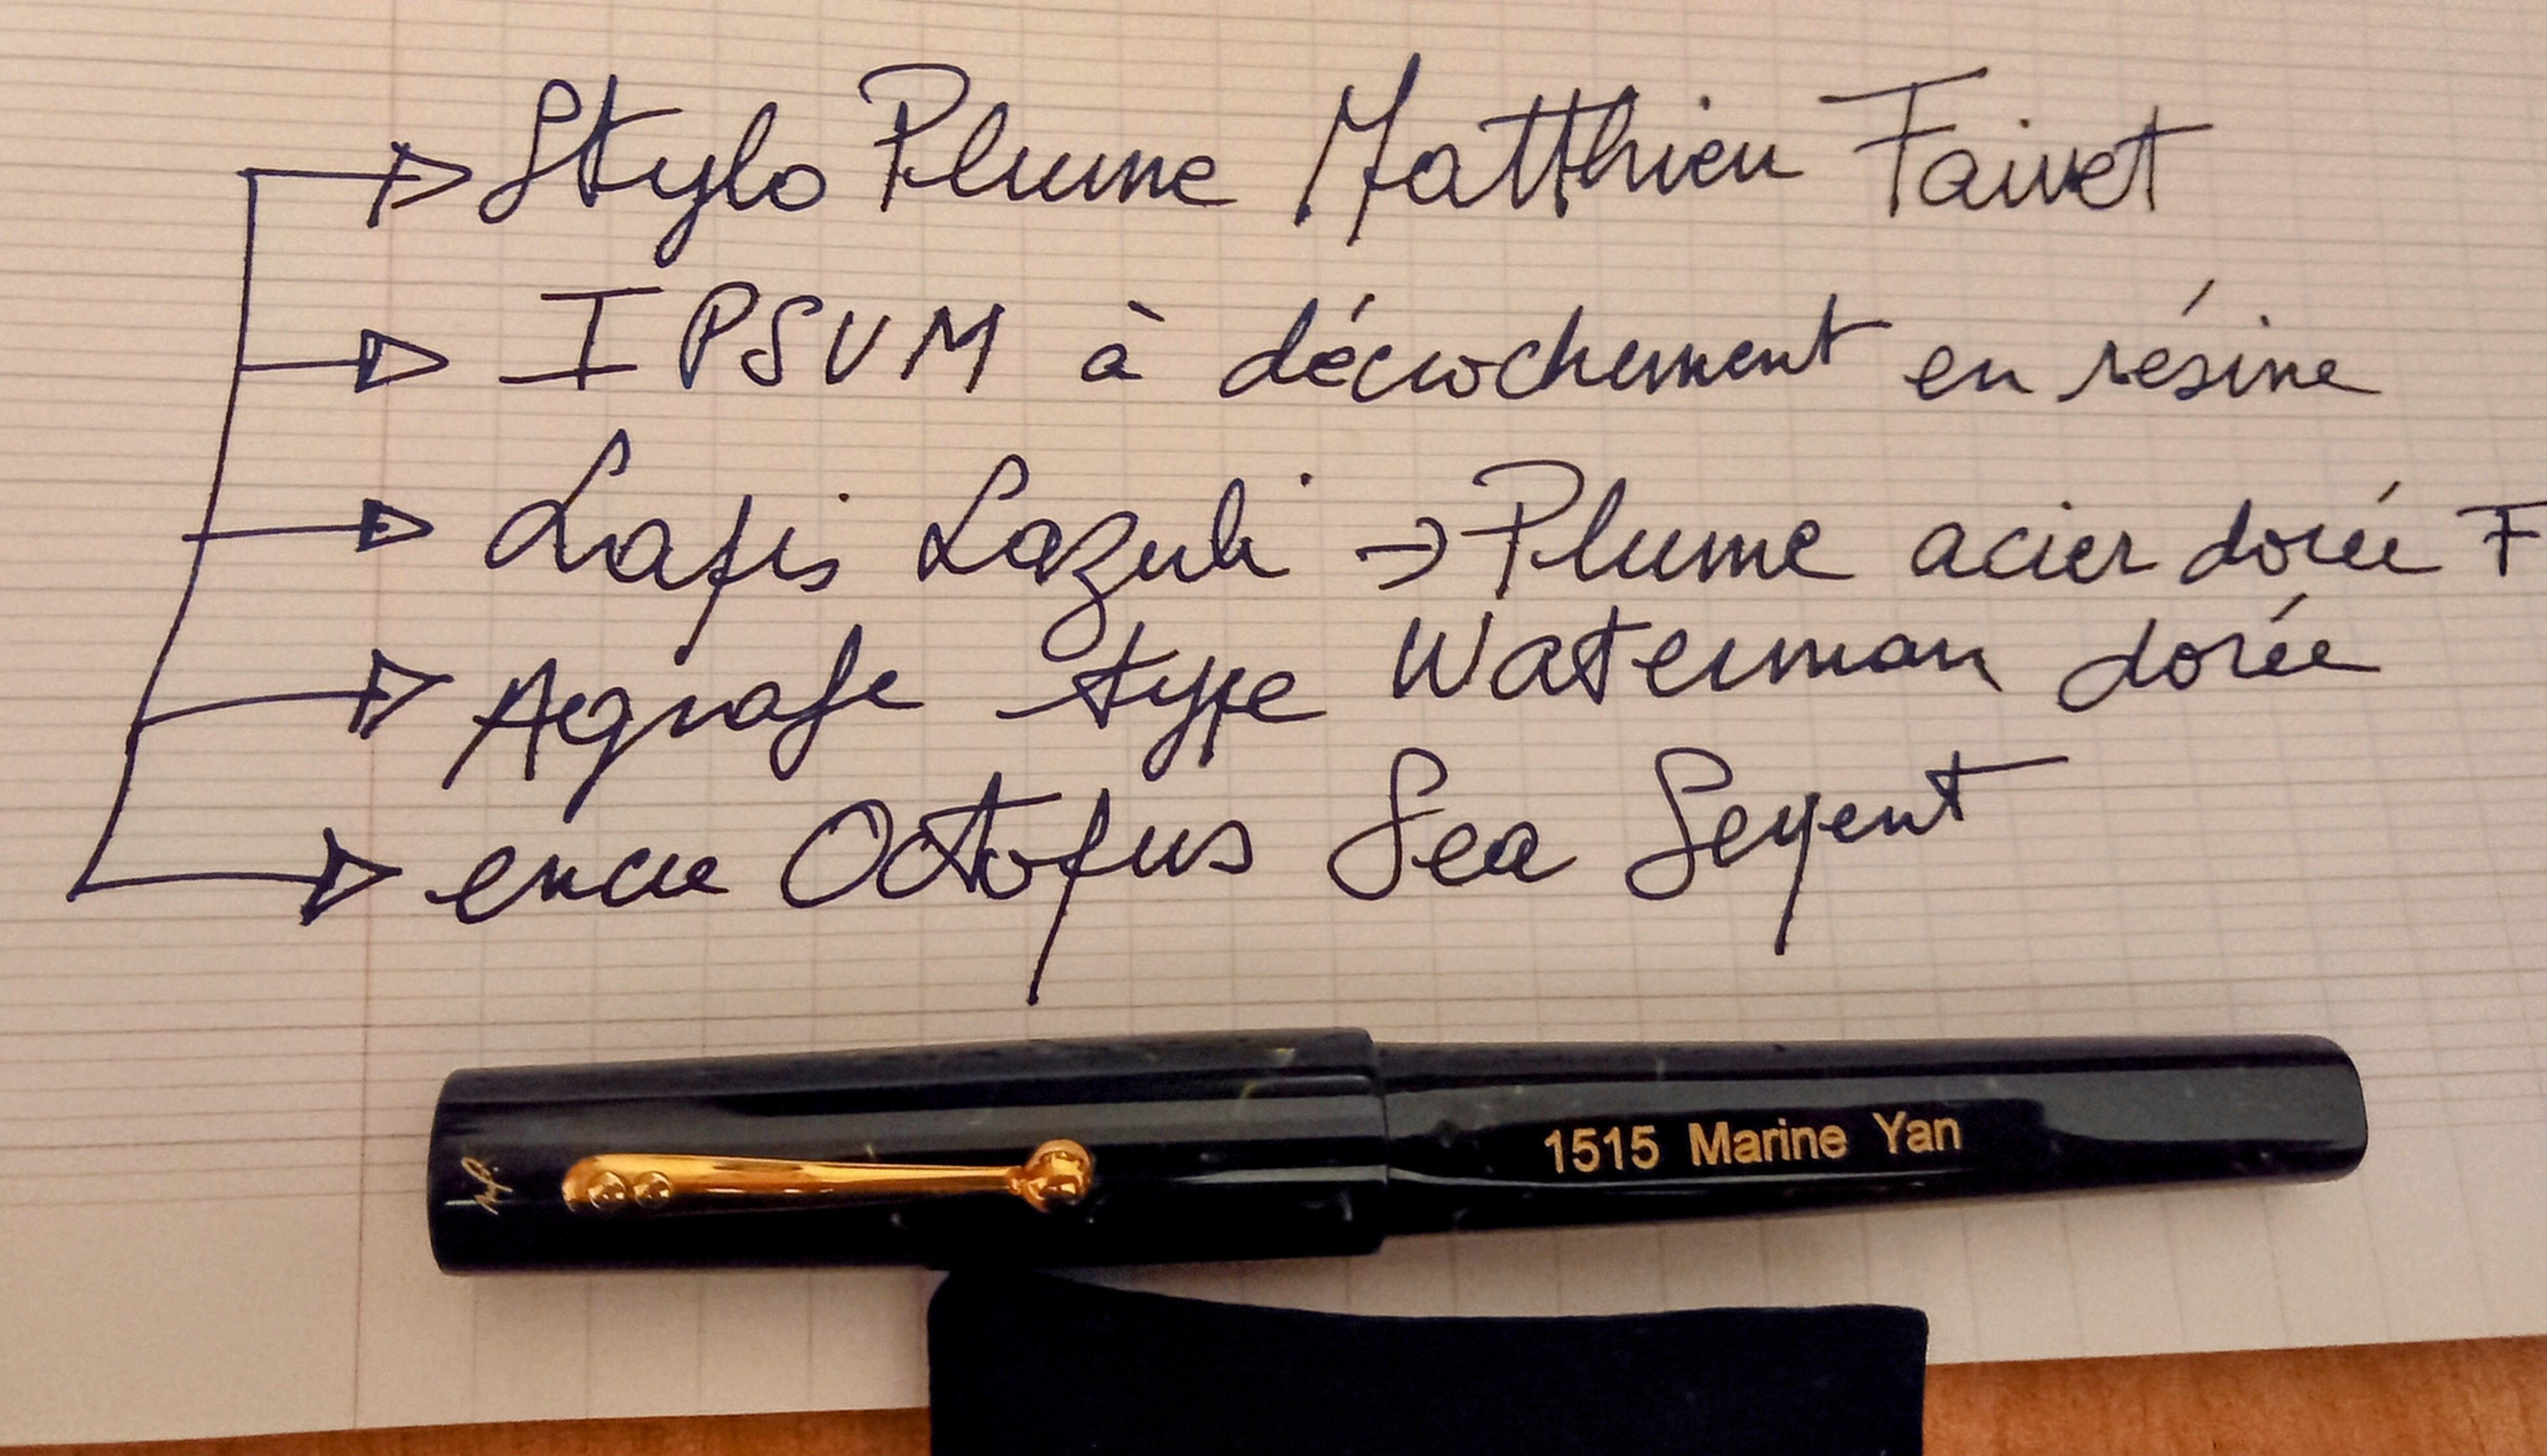 Stylo Plume Matthieu Faivet
IPSUM à décrochement en résine
Lapis Lazuli → Plume acier dorée F
Agrafe type Waterman dorée
encre Octopus Sea Serpent
1515 Marine Yan